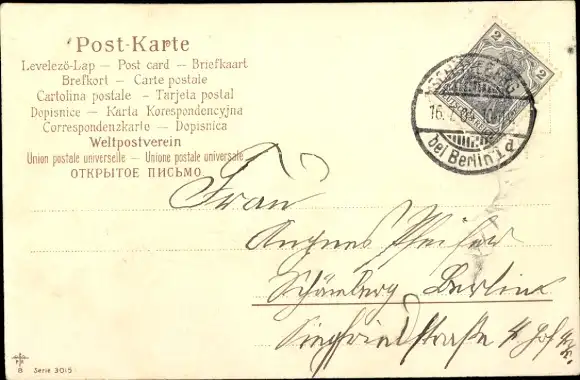 Post-Karte
Levelező-Lap — Post card — Briefkaart
Brefkort — Carte postale
Cartolina postale — Tarjeta postal
Dopisnice — Karta Korespondencyjna
Correspondenzkarte — Dopisnica
Weltpostverein
Union postale universelle — Unione postale universale
ОТКРЫТОЕ ПИСЬМО
2 2
SCHÖNEBERG
16.
bei Berlin 1 d
Frau
Agnes Pfeifer
Schöneberg Berlin
Siegfriedstraße 4 Hof
8 Serie 3015